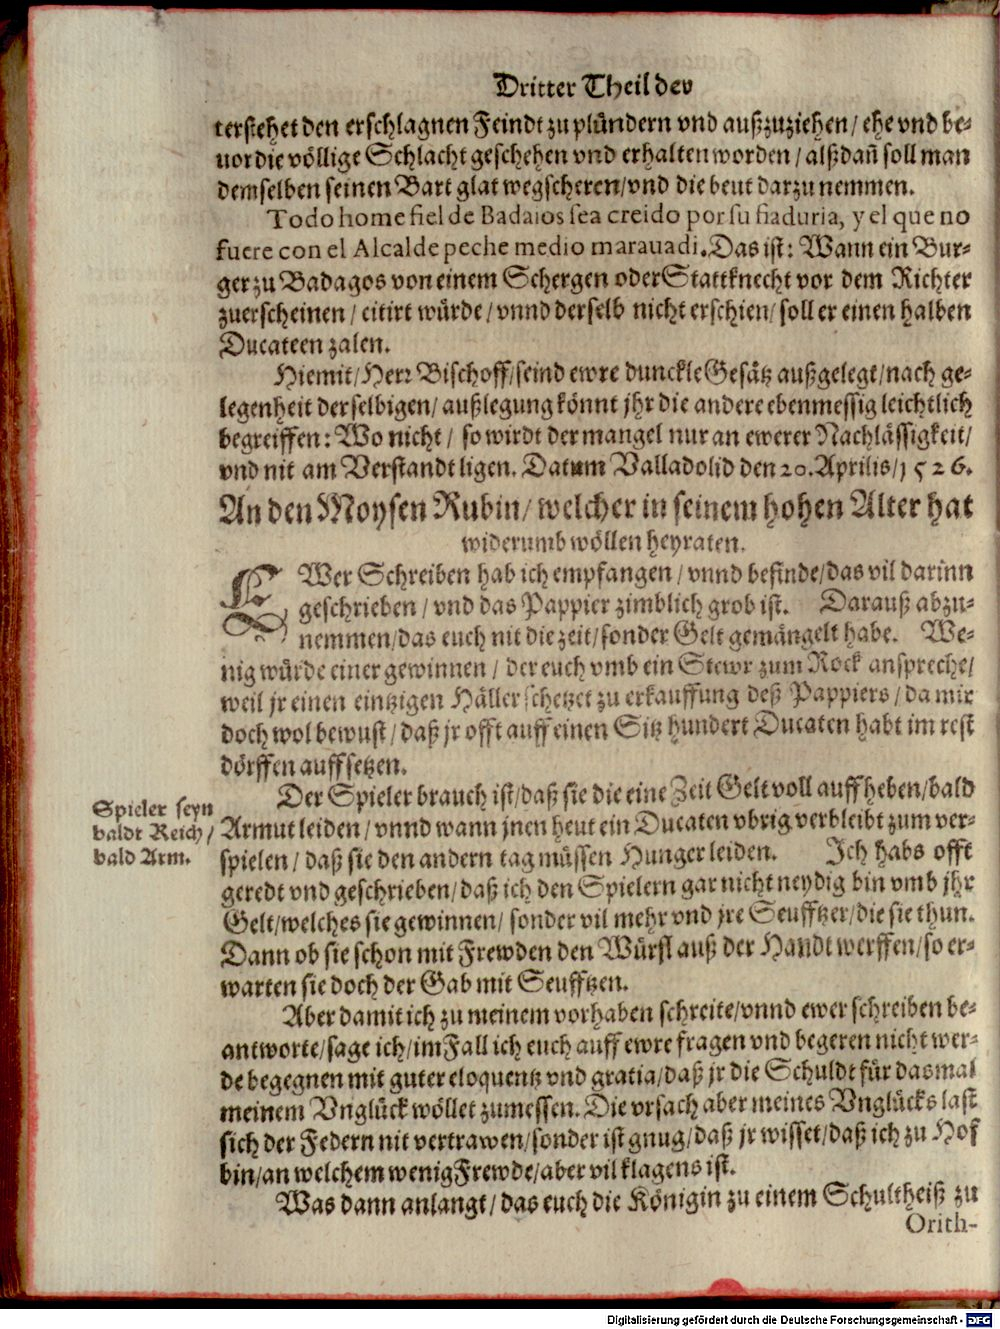 Dritter Theil der
terstehet den erschlagnen Feindt zu plündern vnd außzuziehen / ehe vnd be-
uor die völlige Schlacht geschehen vnd erhalten worden / alßdañ soll man
demselben seinen Bart glat wegscheren / vnd die beut darzu nemmen.
Todo home fiel de Badaios sea creido por su fiaduria, y el que no
fuere con el Alcalde peche medio marauadi. Das ist: Wann ein Bur-
ger zu Badagos von einem Schergen oder Stattknecht vor dem Richter
zuerscheinen / citirt würde / vnnd derselb nicht erschien / soll er einen halben
Ducateen zalen.
Hiemit / Herr Bischoff / seind ewre dunckle Gesätz außgelegt / nach ge-
legenheit derselbigen / außlegung könnt jhr die andere ebenmessig leichtlich
begreiffen: Wo nicht / so wirdt der mangel nur an ewerer Nachlässigkeit /
vnd nit am Verstandt ligen. Datum Valladolid den 20. Aprilis / 1526.
An den Moysen Rubin / welcher in seinem hohen Alter hat
widerumb wöllen heyraten.
EWer Schreiben hab ich empfangen / vnnd befinde / das vil darinn
geschrieben / vnd das Pappier zimblich grob ist. Darauß abzu-
nemmen / das euch nit die zeit / sonder Gelt gemängelt habe. We-
nig würde einer gewinnen / der euch vmb ein Stewr zum Rock anspreche /
weil jr einen eintzigen Häller schetzet zu erkauffung deß Pappiers / da mir
doch wol bewust / daß jr offt auff einen Sitz hundert Ducaten habt im rest
dörffen auffsetzen.
Der Spieler brauch ist / daß sie die eine Zeit Gelt voll auffheben / bald
Armut leiden / vnnd wann jnen heut ein Ducaten vbrig verbleibt zum ver-
spielen / daß sie den andern tag müssen Hunger leiden. Ich habs offt
geredt vnd geschrieben / daß ich den Spielern gar nicht neydig bin vmb jhr
Gelt / welches sie gewinnen / sonder vil mehr vnd jre Seufftzer / die sie thun.
Dann ob sie schon mit Frewden den Würfl auß der Handt werffen / so er-
warten sie doch der Gab mit Seufftzen.
Spieler seyn
baldt Reich /
bald Arm.
Aber damit ich zu meinem vorhaben schreite / vnnd ewer schreiben be-
antworte / sage ich / im Fall ich euch auff ewre fragen vnd begeren nicht wer-
de begegnen mit guter eloquentz vnd gratia / daß jr die Schuldt für dasmal
meinem Vnglück wöllet zumessen. Die vrsach aber meines Vnglücks last
sich der Federn nit vertrawen / sonder ist gnug / daß jr wisset / daß ich zu Hof
bin / an welchem wenig Frewde / aber vil klagens ist.
Was dann anlangt / das euch die Königin zu einem Schultheiß zu
Orith-
Digitalisierung gefördert durch die Deutsche Forschungsgemeinschaft - DFG